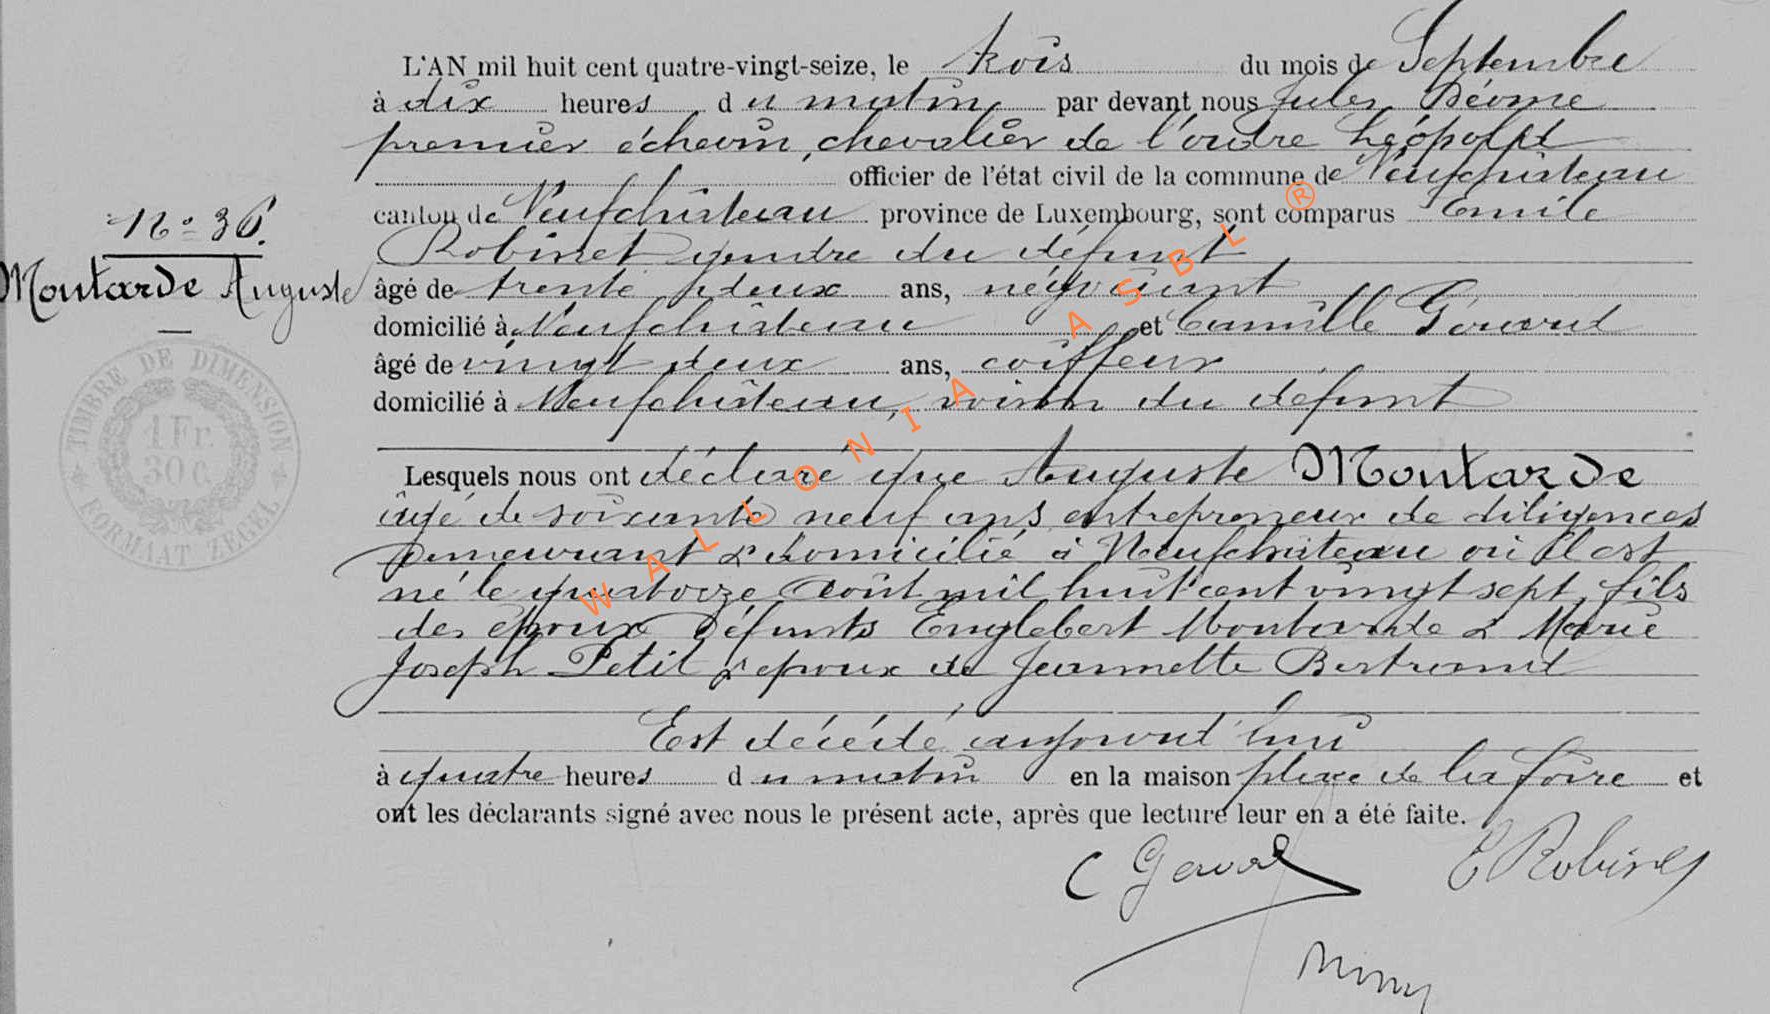 L'AN mil huit cent quatre-vingt-seize, le trois du mois de Septembre
à dix heures du matin, par devant nous Jules
premier échevin, chevalier de l'ordre Léopold
officier de l'état civil de la commune de Neufchâteau
canton de Neufchâteau province de Luxembourg, sont comparus Emile
Robinet gendre du défunt
âgé de trente deux ans, négociant
domicilié à Neufchâteau et Camille Gérard
âgé de vingt deux ans, coiffeur
domicilié à Neufchâteau, voisin du défunt
N° 36.
Moutarde Auguste
TIMBRE DE DIMENSION
1 Fr
30 c.
FORMAAT ZEGEL
Lesquels nous ont déclaré que Auguste Moutarde
âgé de soixante neuf ans entrepreneur de diligences
demeurant & domicilié à Neufchateau où il est
né le quatorze Août mil huit cent vingt sept, fils
des époux défunts Englebert Moutarde & Marie
Joseph Petit & epoux de Jeannette Bertrand
Est décédé aujourd'hui
à quatre heures du matin en la maison place de la foire et
ont les déclarants signé avec nous le présent acte, après que lecture leur en a été faite.
C Gerard E Robinet
WALLONIA ASBL ®